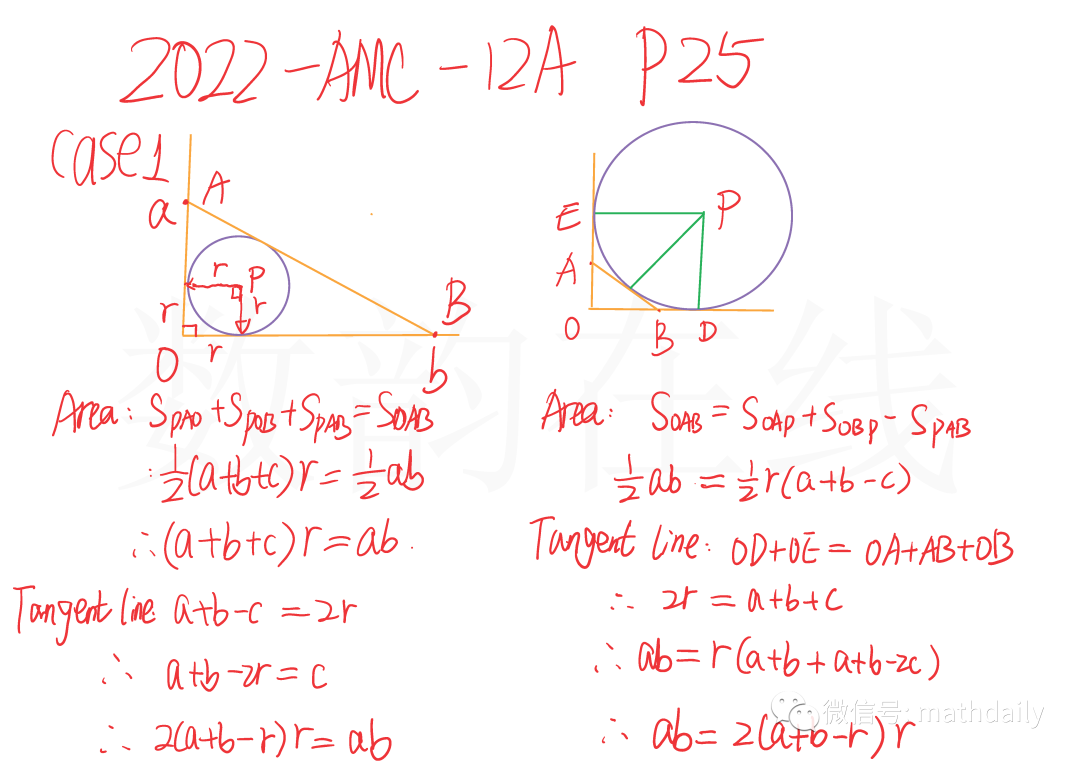 2022-AMC-12A P25
Case1
A
a
r
P
r
r
B
O
r
b
E
P
A
O
B
D
Area: S_{PAO}+S_{POB}+S_{PAB}=S_{OAB}
∴\frac{1}{2}(a+b+c)r=\frac{1}{2}ab
∴(a+b+c)r=ab.
Tangent line: a+b-c=2r
∴ a+b-2r=c
∴ 2(a+b-r)r=ab
Area: S_{OAB}=S_{OAP}+S_{OBP}-S_{PAB}
\frac{1}{2}ab=\frac{1}{2}r(a+b-c)
Tangent line: OD+OE=OA+AB+OB
∴ 2r=a+b+c
∴ ab=r(a+b+a+b-2c)
∴ ab=2(a+b-r)r
数韵在线
微信号: mathdaily